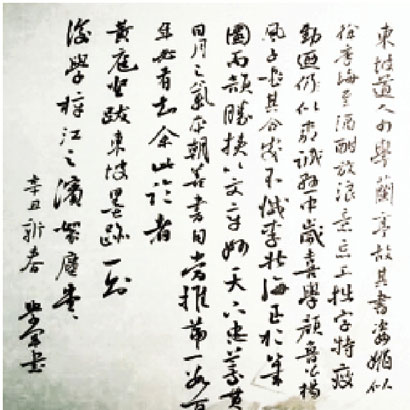 東坡道人少學蘭亭故其書姿媚似
徐季海至酒酣放浪意忘工拙字特瘦
勁迺似柳誠懸中歲喜學顏魯公楊
風子書其合處不減李北海至於筆
圓而韻勝挾以文章妙天下忠義貫
日月之氣本朝善書自當推第一數百
年必有知余此論者
黄庭堅跋東坡墨跡一則
後學梓江之濱
辛丑新春